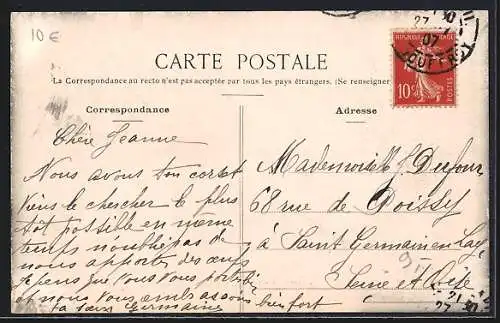 10 €
CARTE POSTALE
La Correspondance au recto n'est pas acceptée par tous les pays étrangers. (Se renseigner
Correspondance
Adresse
REPUBLIQUE
10c
POSTES
27
07
Chère Jeanne
Nous avons ton corset
Viens le chercher le plus
tôt possible en même
temps n'oublie pas de
nous apporter des œufs
Je pense que vous vous portez bien
et nous vous embrassons bien fort
ta sœur Germaine
Mademoiselle J Dufour
68 rue de Poissy
à Saint Germain en Lay
Seine et Oise